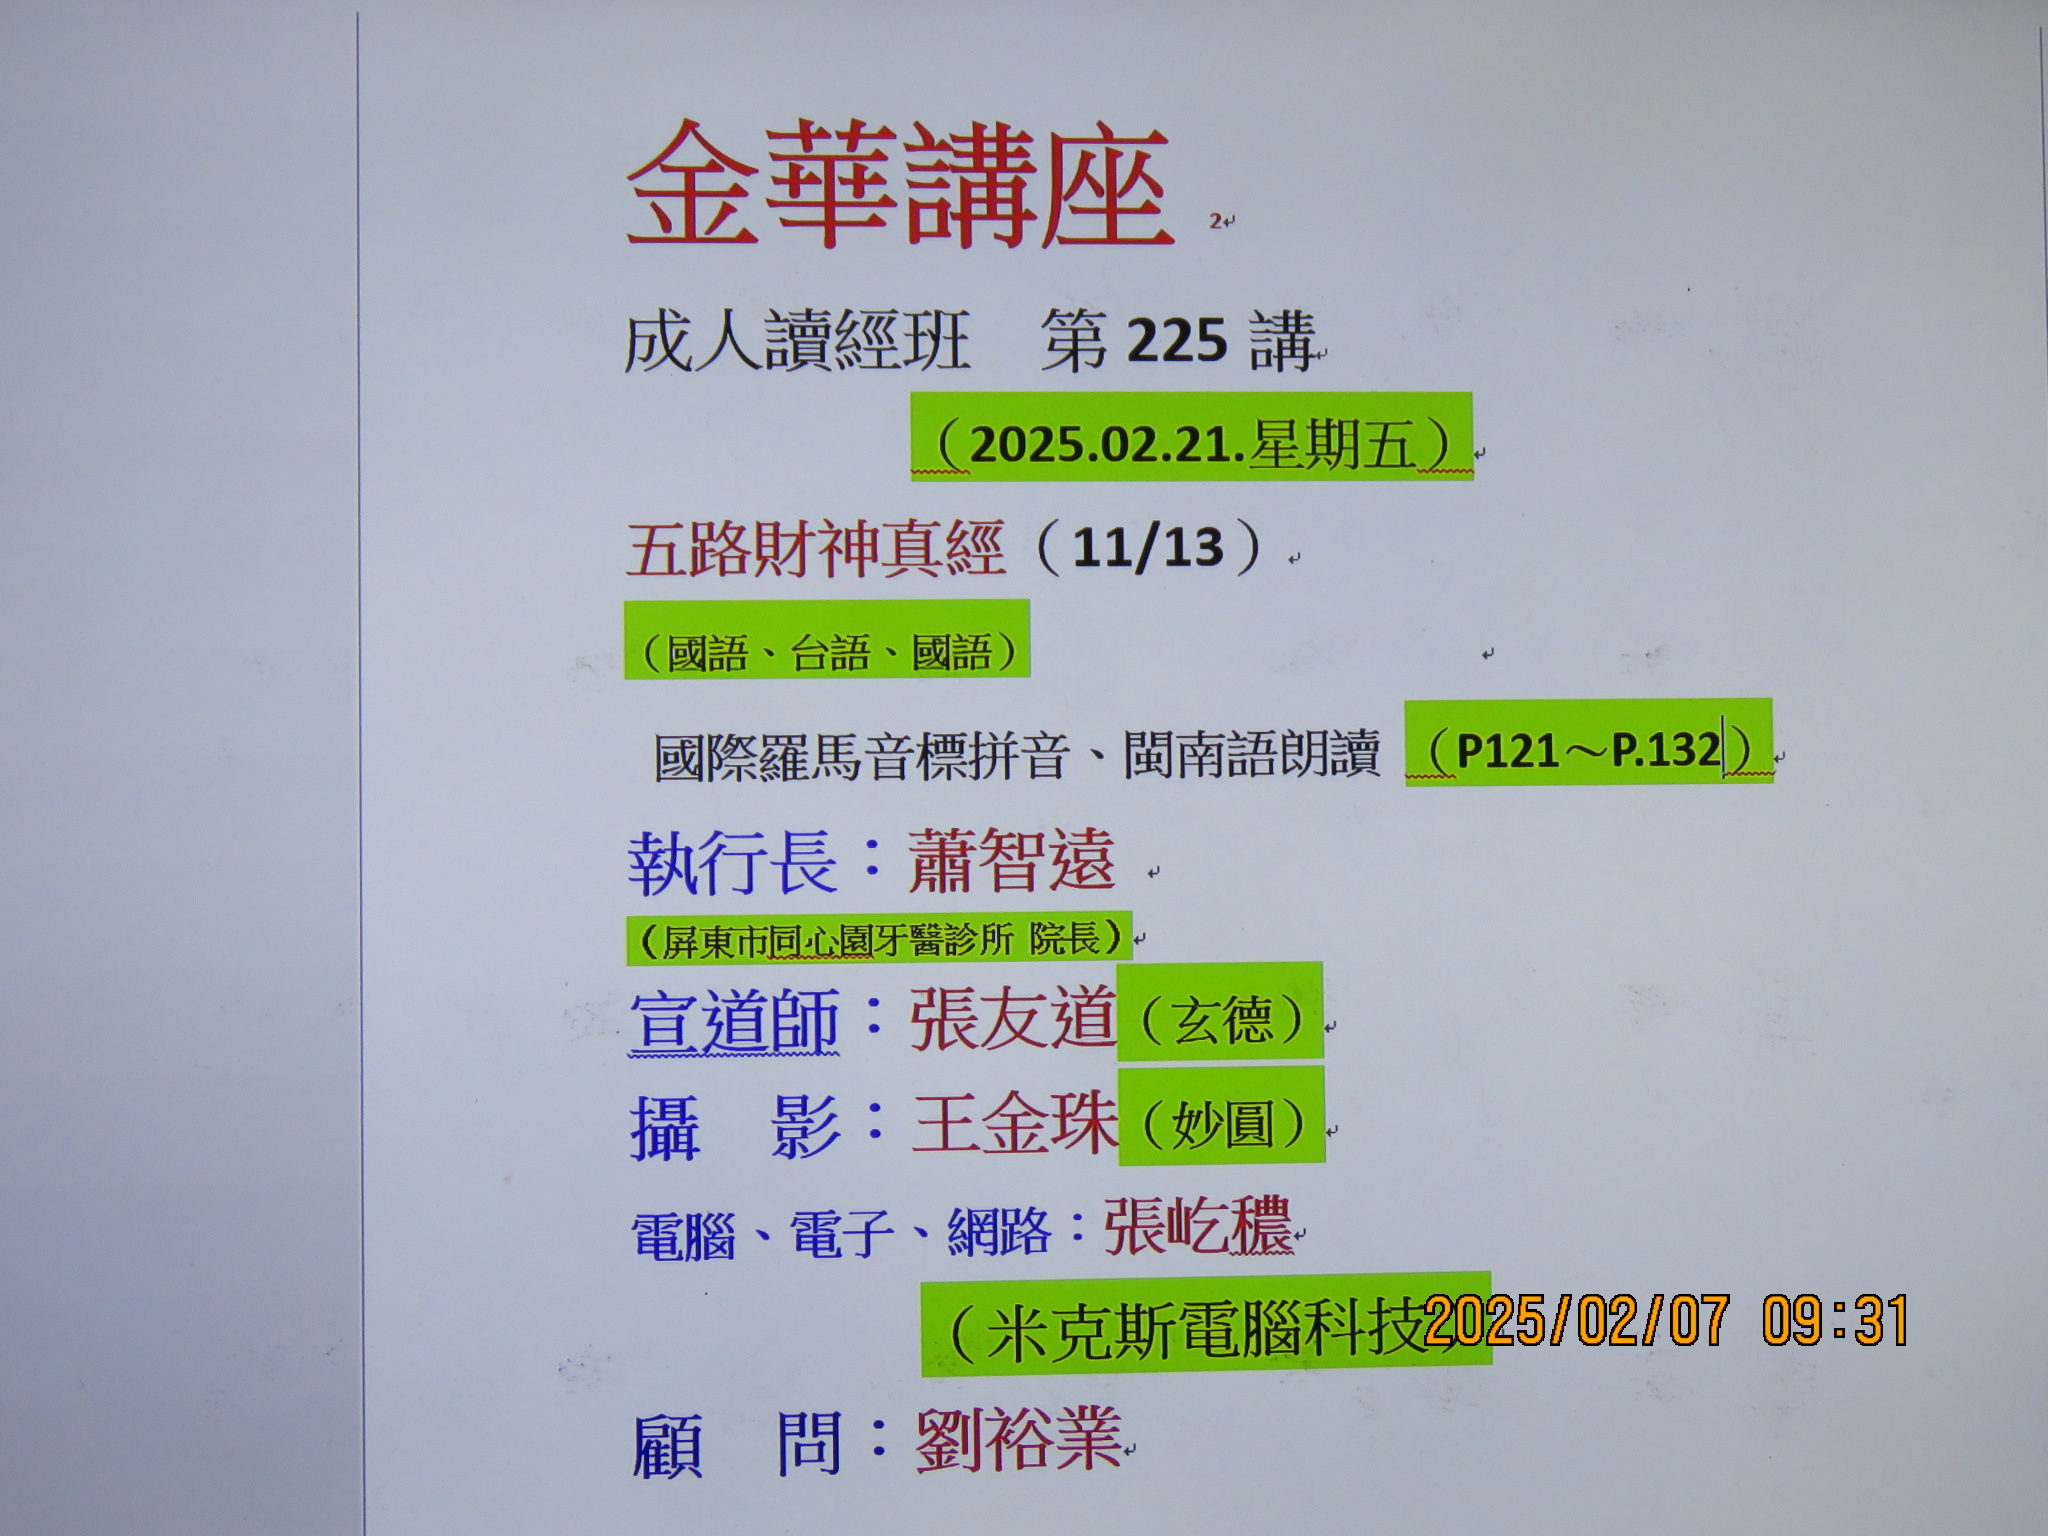 金華講座 2
成人讀經班　第 225 講
（2025.02.21.星期五）
五路財神真經（11/13）
（國語、台語、國語）
國際羅馬音標拼音、閩南語朗讀 （P121～P.132）
執行長：蕭智遠
（屏東市同心園牙醫診所 院長）
宣道師：張友道（玄德）
攝　影：王金珠（妙圓）
電腦、電子、網路：張屹穠
（米克斯電腦科技）
2025/02/07 09:31
顧　問：劉裕業